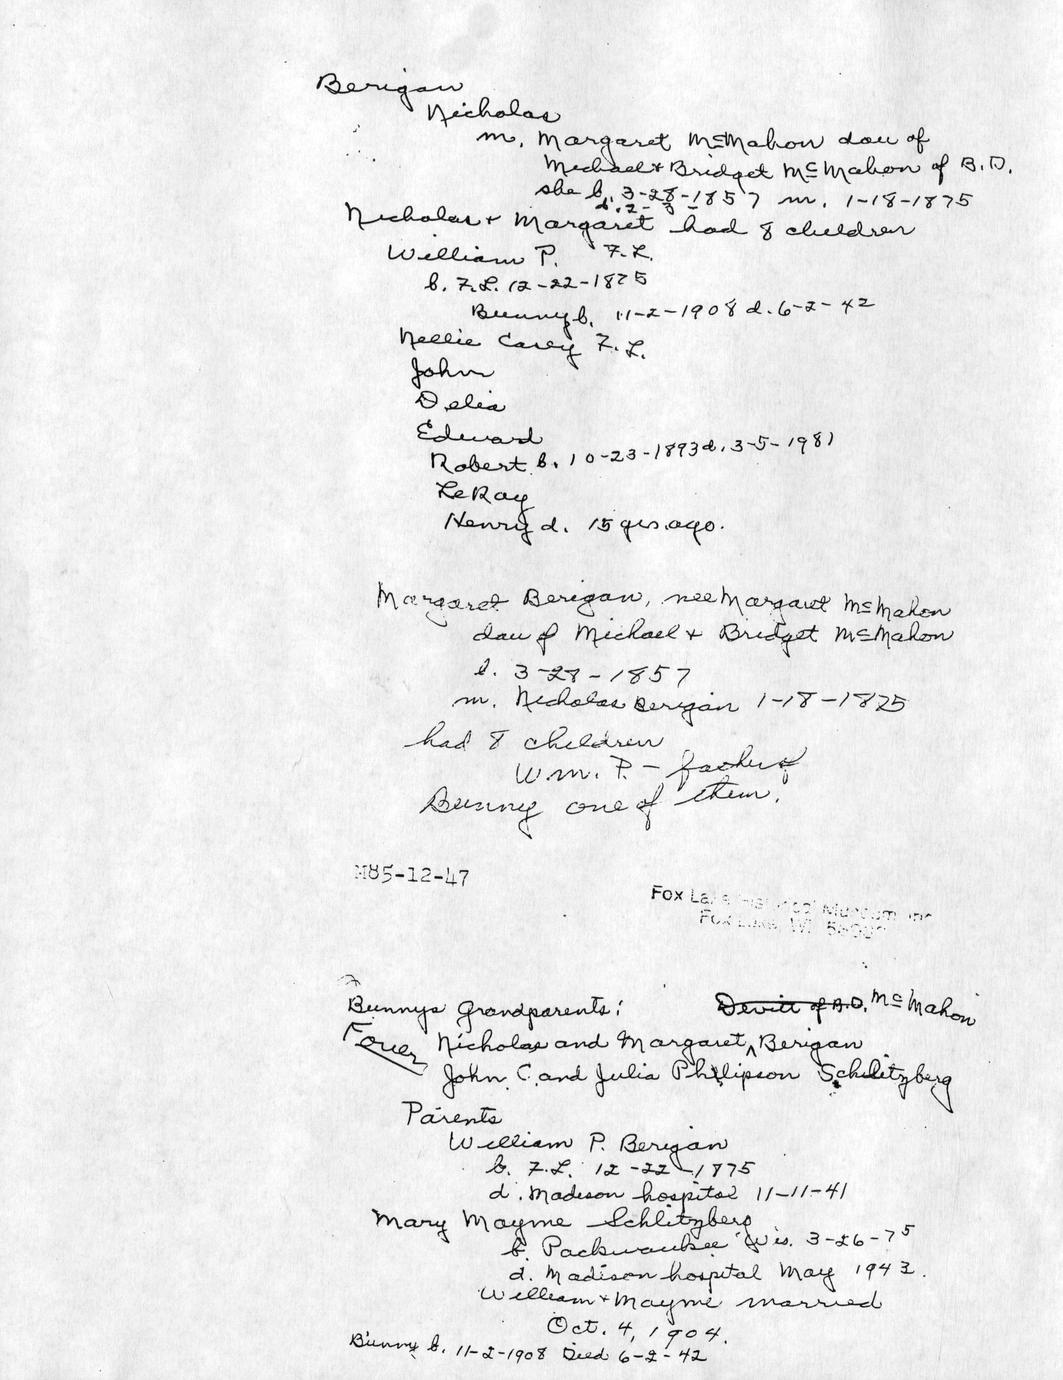 Berigan
Nicholas
m. Margaret McMahon dau of
Michael & Bridget McMahon of B.D.
she b. 3-28-1857 m. 1-18-1875
Nicholas + Margaret had 8 children
William P. F.L.
b. F.L. 12-22-1875
Bunny b. 11-2-1908 d. 6-2-42
Nellie Carey F.L.
John
Delia
Edward
Robert b. 10-23-1893 d. 3-5-1981
LeRay
Henry d. 15 yrs. ago.
Margaret Berigan, nee Margaret McMahon
dau of Michael + Bridget McMahon
b. 3-28-1857
m. Nicholas Berigan 1-18-1875
had 8 children
Wm. P. - father of
Bunny one of them.
M85-12-47
Fox Lake Historical Museum Inc
Fox Lake, WI
Bunnys Grandparents: Devitt of B.D. McMahon
Nicholas and Margaret ^ Berigan
John C. and Julia Phillipson Schlitzberg
Parents
William P. Berigan
b. F.L. 12-22-1875
d. Madison hospital 11-11-41
Mary Mayme Schlitzberg
b. Packwaukee Wis. 3-26-75
d. Madison hospital May 1943.
William + Mayme married
Oct. 4, 1904.
Bunny b. 11-2-1908 Died 6-2-42